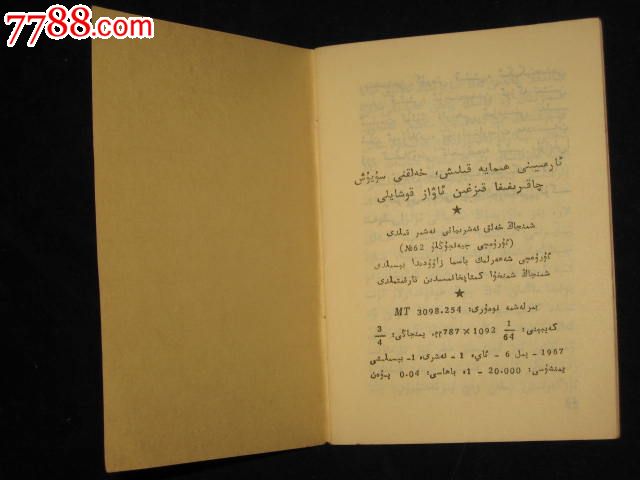 7788.com
ئارمىيىنى ھىمايە قىلىش، خەلقنى سۆيۈش
چاقىرىقىغا قىزغىن ئاۋاز قوشايلى
★
شىنجاڭ خەلق نەشرىياتى نەشىر قىلدى
(ئۈرۈمچى جيەفاڭلۇ №62)
ئۈرۈمچى شەھەرلىك باسما زاۋۇدىدا بېسىلدى
شىنجاڭ شىنخۇا كىتاپخانىسىدىن تارقىتىلدى
★
بىرلەشمە نومۇرى: MT 3098.254
كەيىپىنى: 1/64 1092 × 787مم، يىنجاڭى: 3/4
1967 - يىل 6 - ئاي، 1 - نەشرى، 1 - بېسىلىشى
يىنشۇسى: 20.000 - 1، باھاسى: 0.04 يۈەن